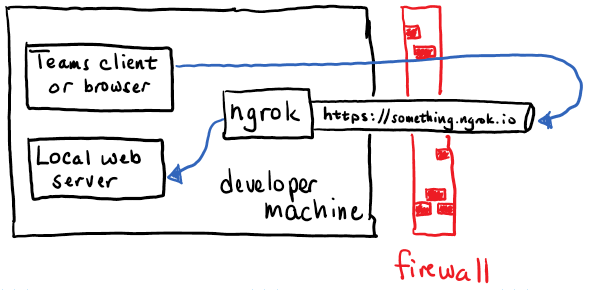 Teams client
or browser
ngrok
https://something.ngrok.io
Local web
server
developer
machine
firewall